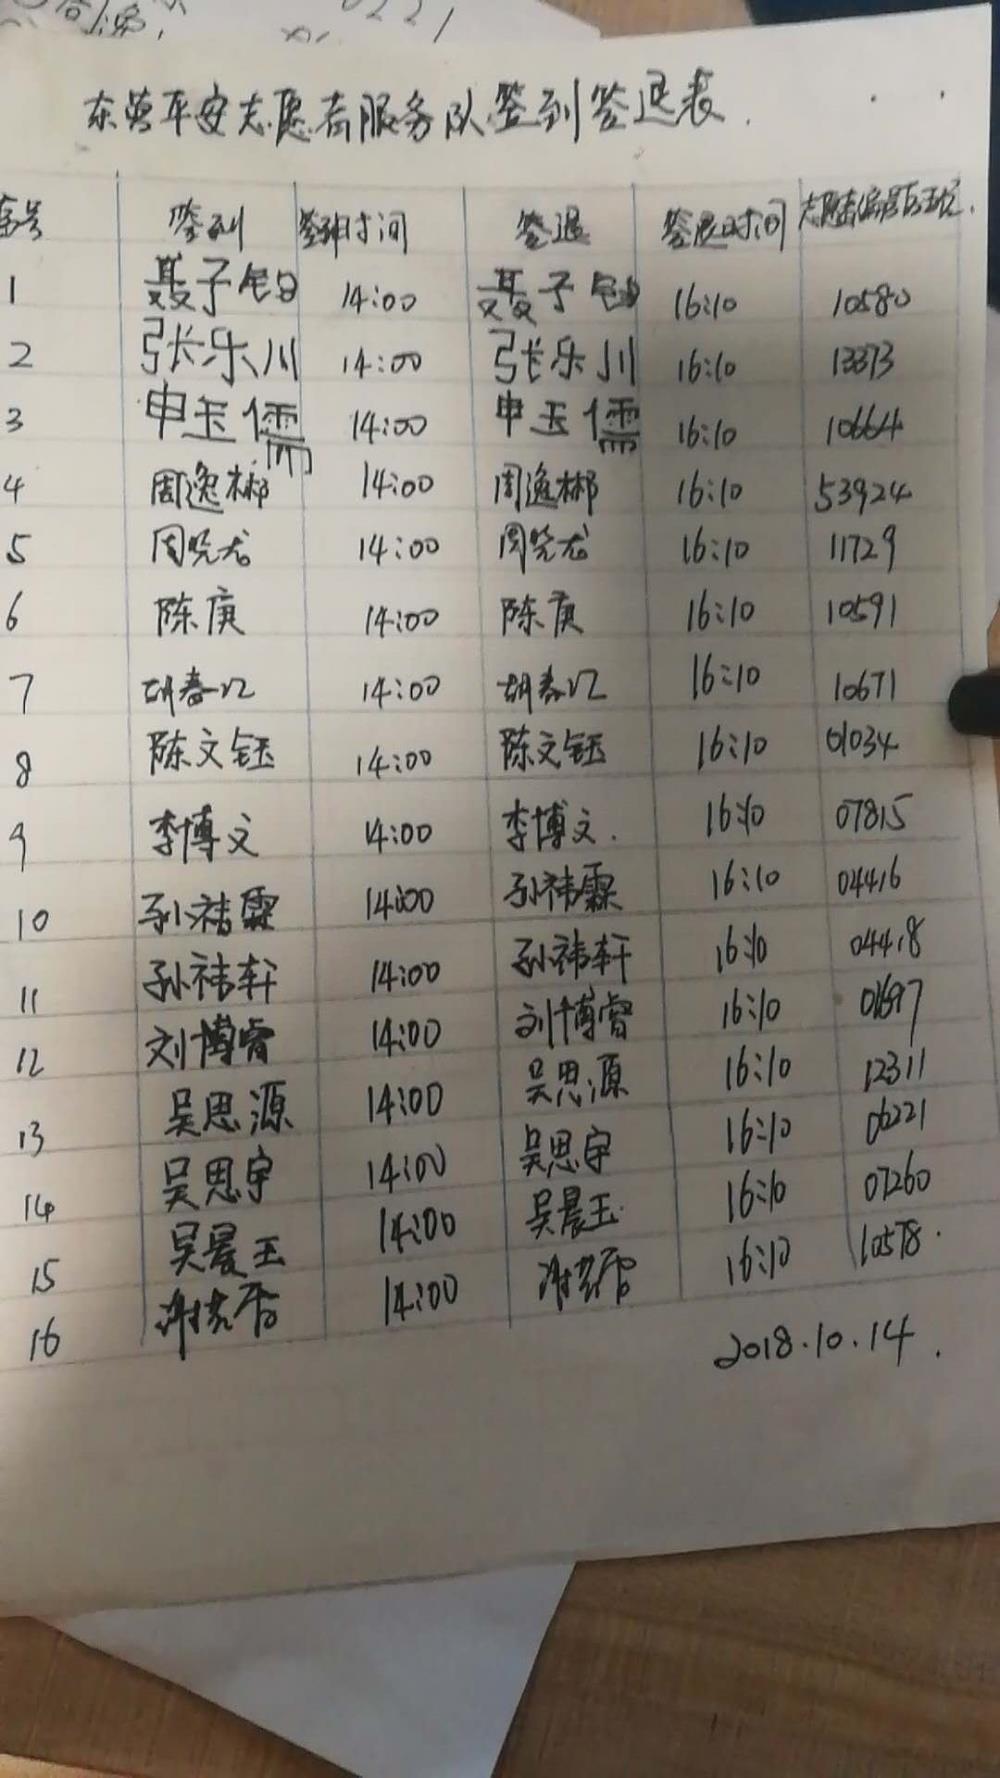 0221
东营平安志愿者服务队签到签退表.
序号 签到 签到时间 签退 签退时间 志愿者编号后五位.
1 聂子钧 14:00 聂子钧 16:10 10580
2 张乐川 14:00 张乐川 16:10 13373
3 申玉儒 14:00 申玉儒 16:10 10664
4 周逸彬 14:00 周逸彬 16:10 53924
5 周晓龙 14:00 周晓龙 16:10 11729
6 陈庚 14:00 陈庚 16:10 10591
7 胡春江 14:00 胡春江 16:10 10671
8 陈文钰 14:00 陈文钰 16:10 01034
9 李博文 14:00 李博文. 16:10 07815
10 孙祎霖 14:00 孙祎霖 16:10 04416
11 孙祎轩 14:00 孙祎轩 16:10 04418
12 刘博睿 14:00 刘博睿 16:10 01697
13 吴思源 14:00 吴思源 16:10 12311
14 吴思宇 14:00 吴思宇 16:10 06221
15 吴晨玉 14:00 吴晨玉 16:10 07260
16 14:00 16:10 10578.
2018.10.14.